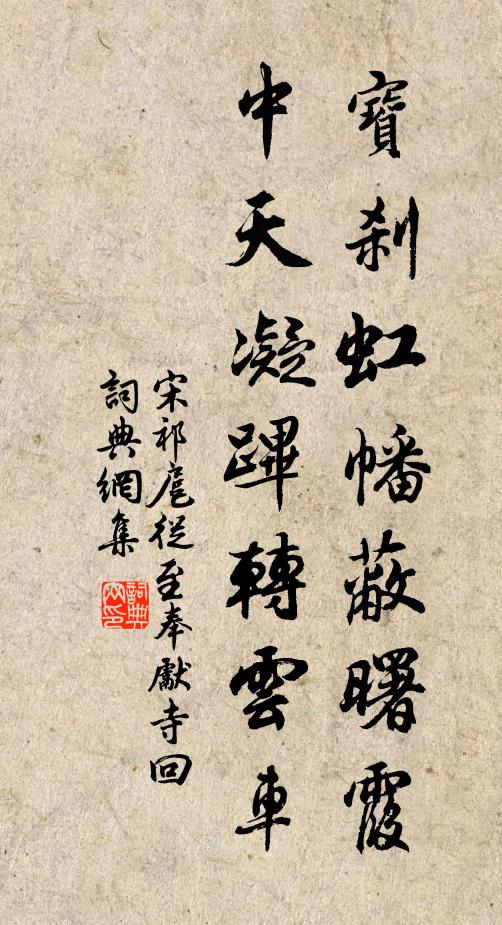 寶刹虹幡蔽曙霞
中天凝蹕轉雲車
宋祁扈從至奉獻寺回
詞典網集
詞典網印